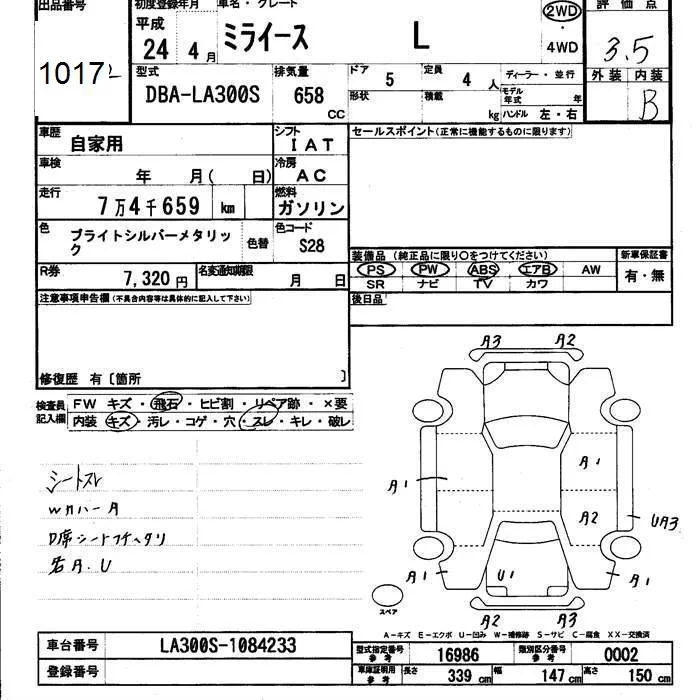 出品番号 初度登録年月 車名・グレード 評価点
平成 24 4月 ミライース L 2WD・4WD 3.5
1017
型式 排気量 ドア 5 定員 4人 ディーラー・並行 外装 内装
DBA-LA300S 658 CC 形状 積載 kg モデル年式 年 ハンドル 左・右 B
車歴 自家用 シフト IAT セールスポイント(正常に機能するものに限ります)
車検 年 月( 日) 冷房 AC
走行 7万4千659 km 燃料 ガソリン
色 ブライトシルバーメタリック 色替 色コード S28
装備品(純正品に限り〇をつけてください) 新車保証書
PS PW ABS エアB AW 有・無
SR ナビ TV カワ
R券 7,320円 名変通知期限 月 日
後日品
注意事項申告欄(不具合内容等は具体的に記入して下さい)
修復歴 有〔箇所 〕
検査員記入欄 FW キズ・飛石・ヒビ割・リペア跡・×要
内装 キズ・汚レ・コゲ・穴・スレ・キレ・破レ
A3 A2
A1
A1
A2
UA3
A1 U1 A1
A2 A3
シートスレ
WカハーA
D席シートフチヘタリ
各A.U
スペア
A-キズ E-エクボ U-凹み W-補修跡 S-サビ C-腐食 XX-交換済
車台番号 LA300S-1084233
型式指定番号参考 16986 類別区分番号参考 0002
登録番号
車庫証明用参考 長さ 339cm 幅 147cm 高さ 150cm